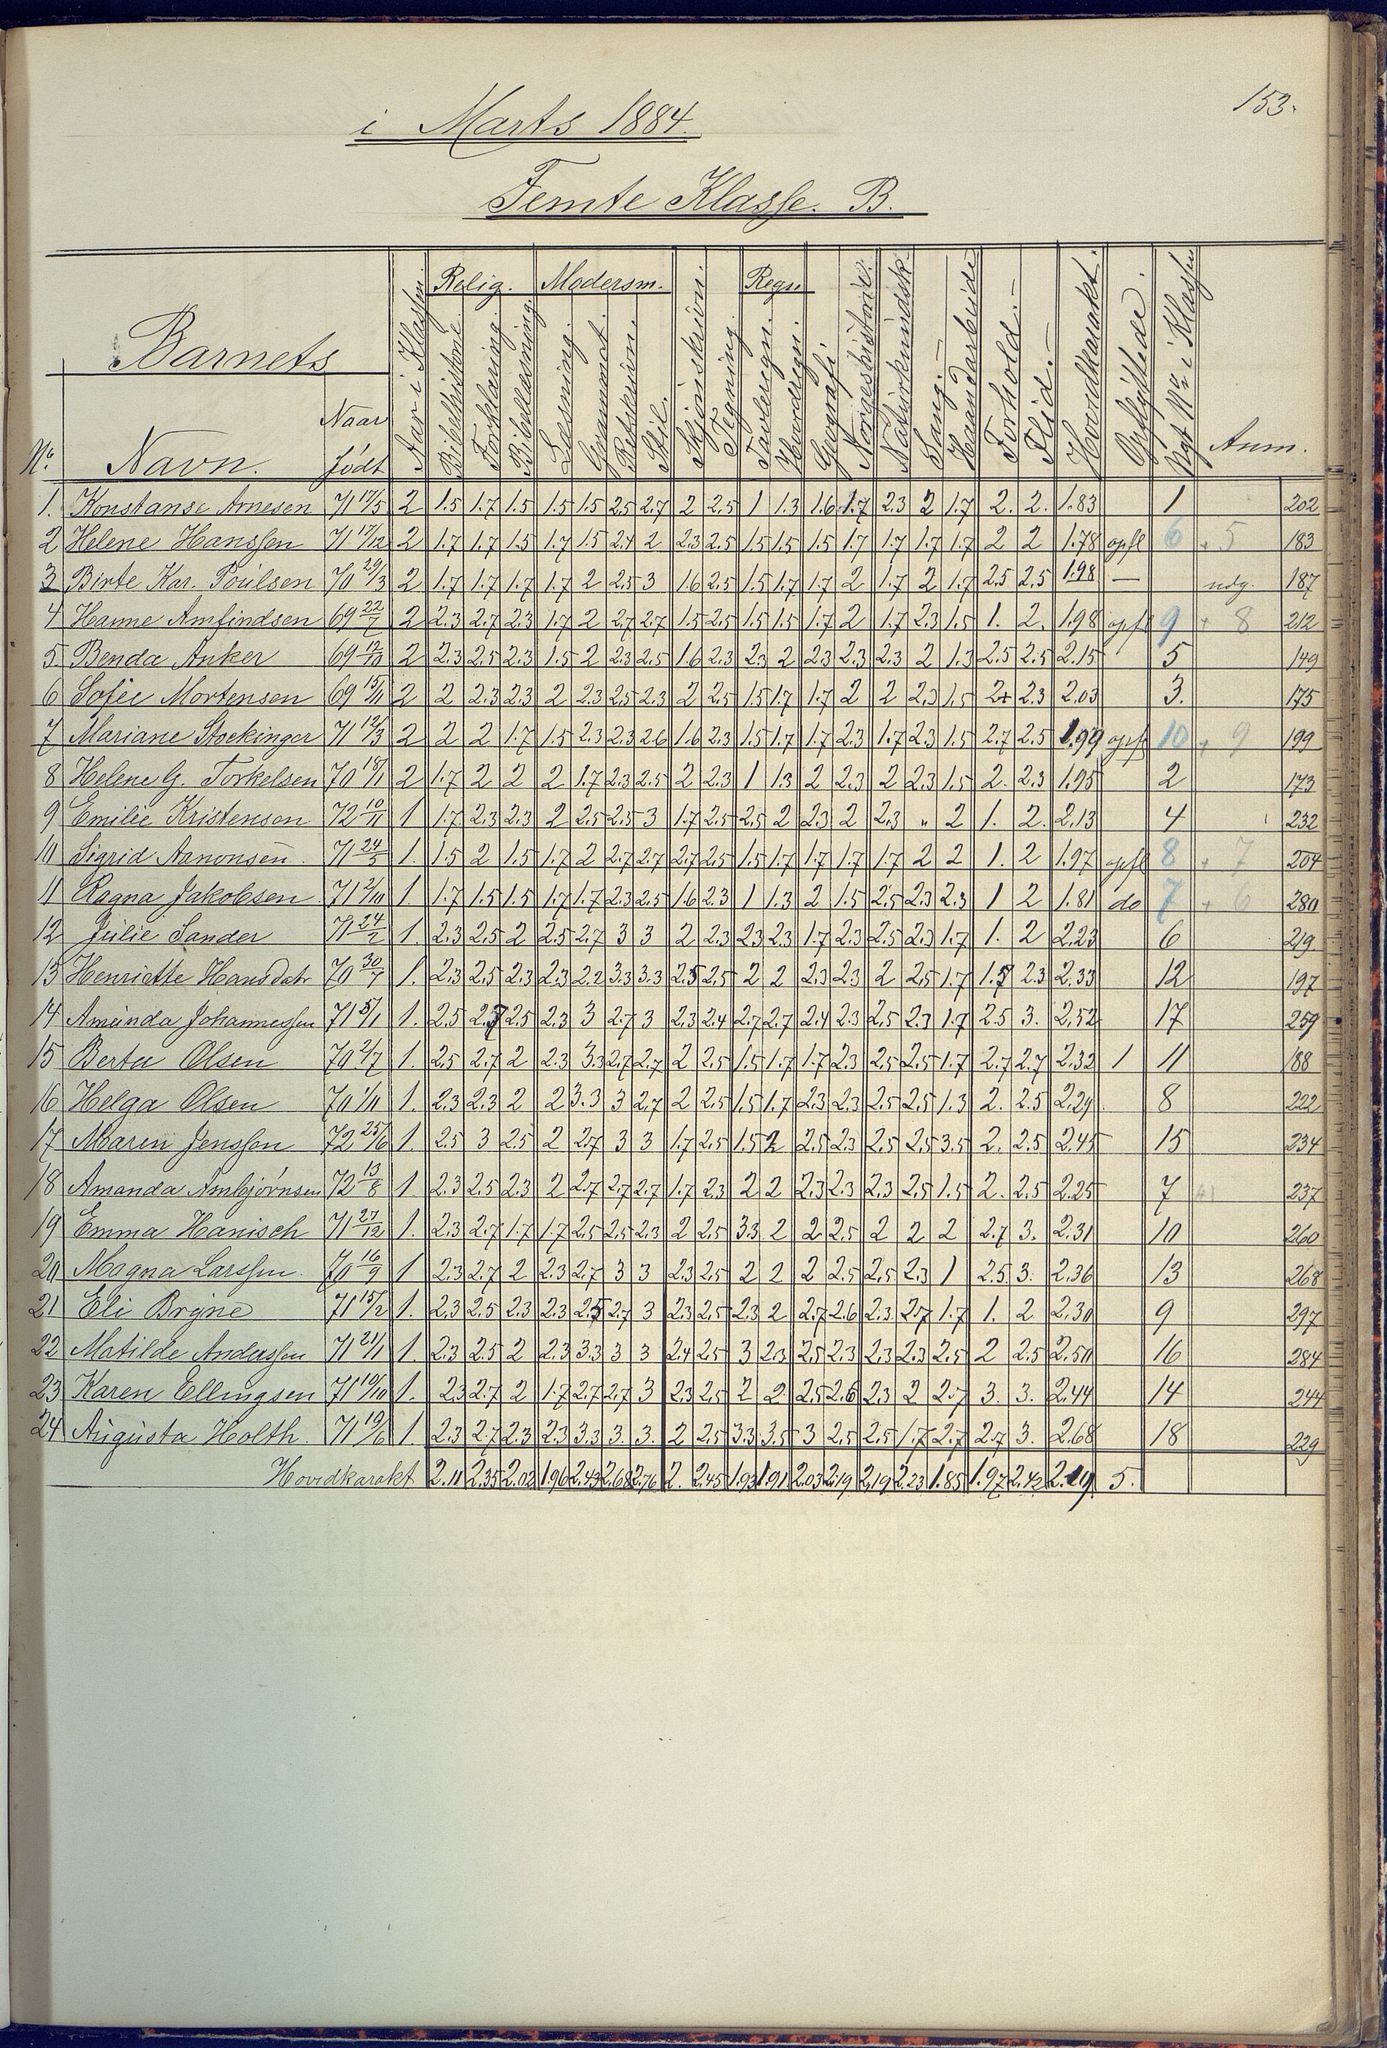 153.
i Marts 1884.
Femte Klasse. B.
Barnets
Relig. Modersm. Regn
No. Navn. Naar født Aar i Klassen. Bibelhistorie. Forklaring. Bibellæsning. Læsning. Grammat. Retskrivn. Stil. Skjönskrivn. Tegning. Tavleregn. Hovdregn. Geografi Norgeshistorie. Naturkundsk. Sang.- Haandarbeide Forhold.- Flid.- Hovdkarakt. Opflyttede. Nyt No i Klassen Anm.
1. Konstanse Arnesen 71 17/5 2 1.5 1.7 1.5 1.5 1.5 2.5 2.7 2 2.5 1 1.3 1.6 1.7 2.3 2 1.7 2. 2. 1.83 1 202
2 Helene Hanssen 71 17/12 2 1.7 1.7 1.5 1.7 1.5 2.4 2 2.3 2.5 1.5 1.5 1.5 1.7 1.7 1.7 1.7 2 2 1.78 opfl 6 + 5 183
3 Birte Kar. Poulsen 70 29/3 2 1.7 1.7 1.7 1.7 2 2.5 3 1.6 2.5 1.5 1.7 1.7 2 1.7 2 1.7 2.5 2.5 1.98 — udg. 187
4 Hanne Arnfindsen 69 22/7 2 2.3 2.7 2.3 1.7 2 2.7 2.7 1.5 2.5 1.5 1.5 1.7 2 1.7 2.3 1.5 1. 2. 1.98 opfl 9 + 8 212
5. Benda Anker 69 12/10 2 2.3 2.5 2.3 1.5 2 2.3 2.5 1.6 2.3 2.3 2 2.3 2.3 2.3 2 1.3 2.5 2.5 2.15 5 149
6 Sofie Mortensen 69 15/11 2 2 2.3 2.3 2 2.3 2.5 2.3 2 2.5 1.5 1.7 1.7 2 2 2.3 1.5 2+ 2.3 2.03 3. 175
7 Mariane Stockinger 71 12/3 2 2 2 1.7 1.5 2.3 2.3 2.6 1.6 2.3 1.5 1.7 1.7 2.3 1.7 2.3 1.5 2.7 2.5 1.99 opfl 10 + 9 199
8 Helene G. Torkelsen 70 18/1 2 1.7 2 2 2 1.7 2.3 2.5 2 2.3 1 1.3 2 2.3 2 2.3 1.5 2. 2.3 1.95 2 173
9 Emilie Kristensen 72 10/11 1 1.7 2.3 2.3 2 2.5 2.5 3 1.7 2.5 2.5 2 2.3 2 2.3 " 2 1. 2. 2.13 4 232
10 Sigrid Aanonsen. 71 24/5 1. 1.5 2 1.5 1.7 2 2.7 2.7 2.7 2.5 1.5 1.7 1.7 1.7 1.7 2 2 1. 2 1.97 opfl 8 + 7 204
11 Ragna Jakobsen 71 2/10 1. 1.7 1.5 1.5 1.7 1.7 2.3 2.5 1.6 2.3 1 1.3 2 1.5 2.5 2.3 2.3 1 2 1.81 do 7 + 6 280
12 Julie Sander 71 24/2 1. 2.3 2.5 2 2.5 2.7 3 3 2 2.3 2.3 2.3 1.7 2.3 2.5 2.3 1.7 1. 2 2.23 6 219
13 Henriette Hansdatr 70 30/7 1. 2.3 2.5 2.3 2.3 2.2 3.3 3.3 2.5 2.5 2 2 2.3 2.3 2 2.5 1.7 1.7 2.3 2.33 12 197
14 Amunda Johannessen 71 5/1 1. 2.5 2.7 2.5 2.3 3 2.7 3 2.3 2.4 2.7 2.7 2.4 2.3 2.5 2.3 1.7 2.5 3. 2.52 17 259
15 Berta Olsen 70 2/7 1. 2.5 2.7 2 2.3 3.3 2.7 2.7 2 2.5 1.5 1.7 1.7 2.3 2.5 2.5 1.7 2.7 2.7 2.32 1 11 188
16 Helga Olsen 70 1/11 1. 2.3 2.3 2 2 3.3 3 2.7 2 2.5 1.5 1.7 2.3 2.3 2.5 2.5 1.3 2. 2.5 2.29 8 222
17 Maren Jenssen 72 25/6 1. 2.5 3 2.5 2 2.7 3 3 1.7 2.5 1.5 2 2.5 2.3 2.5 2.5 3.5 2. 2.5 2.45 15 234
18 Amanda Arnbjørnsen 72 13/8 1. 2.3 2.5 2.3 2 2.7 2.7 2.7 1.7 2.3 2 2 2.3 2.3 2.3 2.5 1.5 2. 2.5 2.25 7 237
19 Emma Hanisch 71 27/12 1. 2.3 2.7 1.7 1.7 2.5 2.5 2.3 2 2.5 3.3 2 2 2.5 2 2 2 2.7 3. 2.31 10 260
20 Magna Larssen 70 16/9 1 2.3 2.7 2 2.3 2.7 3 3 2.3 2.5 2 2 2 2.5 2.5 2.3 1 2.5 3. 2.36 13 268
21 Eli Bryne 71 15/2 1. 2.3 2.5 2.3 2.3 2.5 2.7 3 2.3 2.5 2.3 2 2.7 2.6 2.3 2.7 1.7 1. 2 2.30 9 297
22 Matilde Anderssen 71 21/1 1. 2.3 2.5 2 2.3 3.3 3 3 2.4 2.5 3 2.3 2.5 2.3 2.3 2.3 2.5 2 2.5 2.50 16 284
23 Karen Ellingsen 71 10/10 1. 2.3 2.7 2 1.7 2.7 2.7 3 2.3 2.5 2 2 2.5 2.6 2.3 2 2.7 3. 3. 2.44 14 244
24 Augusta Holth. 71 19/6 1. 2.3 2.7 2.3 2.3 3.3 3. 3. 2 2.5 3.3 3.5 3 2.5 2.5 1.7 2.7 2.7 3. 2.68 18 229
Hovedkarakt 2.11 2.35 2.02 1.96 2.43 2.68 2.76 2. 2.45 1.93 1.91 2.03 2.19 2.19 2.23 1.85 1.97 2.42 2.19 5.